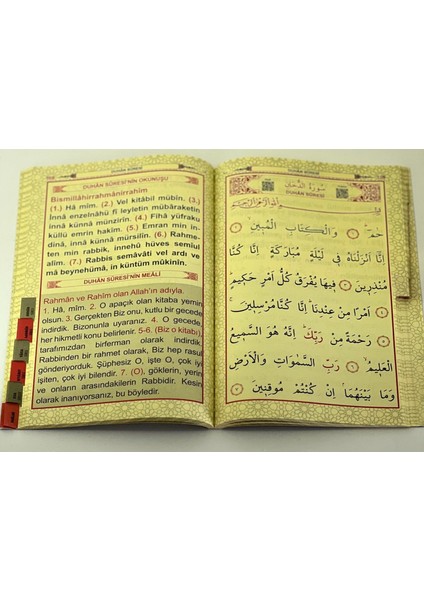 DUHÂN SÛRESİ'NİN OKUNUŞU
Bismillâhirrahmânirrahîm
(1.) Hâ mîm. (2.) Vel kitâbil mübîn. (3.)
İnnâ enzelnâhü fî leyletin mübâraketin
innâ künnâ münzirîn. (4.) Fîhâ yüfraku
küllü emrin hakîm. (5.) Emran min in-
dinâ, innâ künnâ mürsilîn. (6.) Rahme-
ten min rabbik, innehû hüves semîul
alîm. (7.) Rabbis semâvâti vel ardı ve
mâ beynehümâ, in küntüm mûkinîn.
DUHÂN SÛRESİ'NİN MEÂLİ
Rahmân ve Rahîm olan Allah'ın adıyla.
1. Hâ, mîm. 2. O apaçık olan kitaba yemin
olsun. 3. Gerçekten Biz onu, kutlu bir gecede
indirdik. Bizonunla uyarırız. 4. O gecede,
her hikmetli konu belirlenir. 5-6. (Biz o kitabı),
tarafımızdan birferman olarak indirdik.
Rabbinden bir rahmet olarak, Biz hep rasul
gönderiyorduk. Şüphesiz O, işte O, çok iyi
işiten, çok iyi bilendir. 7. (O), göklerin, yerin
ve onların arasındakilerin Rabbidir. Kesin
olarak inanıyorsanız, bu böyledir.
سورة الدخان
DUHÂN SÛRESİ
بِسْمِ اللّٰهِ الرَّحْمٰنِ الرَّحِيمِ
حٰمٓ ١ وَالْكِتَابِ الْمُبِينِ ٢
اِنَّٓا اَنْزَلْنَاهُ فِي لَيْلَةٍ مُبَارَكَةٍ اِنَّا كُنَّا
مُنْذِرِينَ ٣ فِيهَا يُفْرَقُ كُلُّ اَمْرٍ حَكِيمٍ
٤ اَمْرًا مِنْ عِنْدِنَا اِنَّا كُنَّا مُرْسِلِينَ ٥
رَحْمَةً مِنْ رَبِّكَ اِنَّهُ هُوَ السَّمِيعُ
الْعَلِيمُ ٦ رَبِّ السَّمٰوَاتِ وَالْاَرْضِ
وَمَا بَيْنَهُمَا اِنْ كُنْتُمْ مُوقِنِينَ ٧